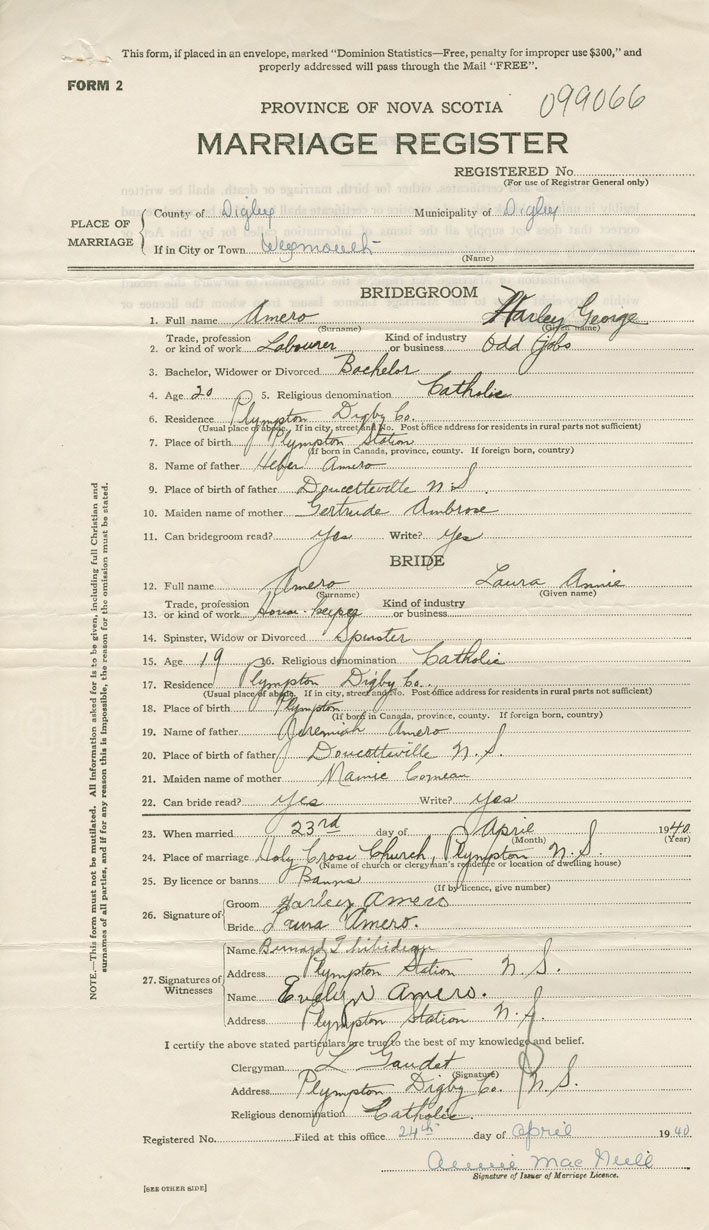 This form, if placed in an envelope, marked "Dominion Statistics—Free, penalty for improper use $300," and
properly addressed will pass through the Mail "FREE".
FORM 2
PROVINCE OF NOVA SCOTIA 099066
MARRIAGE REGISTER
REGISTERED No.
(For use of Registrar General only)
PLACE OF MARRIAGE
County of Digby Municipality of Digby
If in City or Town Weymouth
(Name)
BRIDEGROOM
1. Full name Amero Harley George
(Surname) (Given name)
2. Trade, profession or kind of work Labourer Kind of industry or business Odd jobs
3. Bachelor, Widower or Divorced Bachelor
4. Age 20 5. Religious denomination Catholic
6. Residence Plympton Digby Co.
(Usual place of abode. If in city, street and No. Post office address for residents in rural parts not sufficient)
7. Place of birth Plympton Station
(If born in Canada, province, county. If foreign born, country)
8. Name of father Heber Amero
9. Place of birth of father Doucetteville N.S.
10. Maiden name of mother Gertrude Ambrose
11. Can bridegroom read? Yes Write? Yes
BRIDE
12. Full name Amero Laura Annie
(Surname) (Given name)
13. Trade, profession or kind of work House-keeper Kind of industry or business
14. Spinster, Widow or Divorced Spinster
15. Age 19 16. Religious denomination Catholic
17. Residence Plympton Digby Co.
(Usual place of abode. If in city, street and No. Post office address for residents in rural parts not sufficient)
18. Place of birth Plympton
(If born in Canada, province, county. If foreign born, country)
19. Name of father Jeremiah Amero
20. Place of birth of father Doucetteville N.S.
21. Maiden name of mother Mamie Comeau
22. Can bride read? Yes Write? Yes
23. When married 23rd day of April 1940
(Month) (Year)
24. Place of marriage Holy Cross Church, Plympton N.S.
(Name of church or clergyman's residence or location of dwelling house)
25. By licence or banns Banns
(If by licence, give number)
26. Signature of
Groom Harley Amero
Bride Laura Amero.
27. Signatures of Witnesses
Name Bernard Thibideau
Address Plympton Station N.S.
Name Evelyn Amero.
Address Plympton Station N.S.
I certify the above stated particulars are true to the best of my knowledge and belief.
Clergyman L Gaudet
(Signature)
Address Plympton Digby Co. N.S.
Religious denomination Catholic.
Registered No. Filed at this office 24th day of April 1940
Annie MacNeill
Signature of Issuer of Marriage Licence.
[SEE OTHER SIDE]
NOTE.—This form must not be mutilated. All information asked for is to be given, including full Christian and
surnames of all parties, and if for any reason this is impossible, the reason for the omission must be stated.